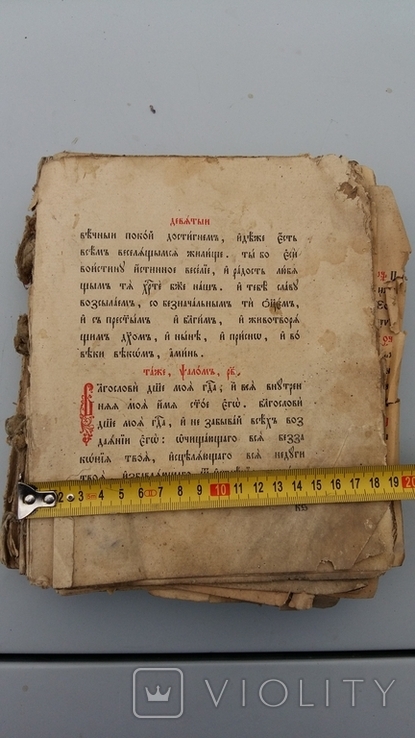 девѧтыи
вѣчныи поко́й дости́гнемъ, и҆дѣ́же є҆сть
всѣ́мъ веселѧ́щымсѧ жили́ще. ты́ бо є҆сѝ
вои́стину и҆́стинное весе́лїе, и҆ ра́дость лю́бѧ
щымъ тѧ̀ хрⷭ҇тѐ бж҃е на́шъ. и҆ тебѣ̀ сла́ву
возсыла́емъ, со безнача́льнымъ тѝ ѻ҆ц҃е́мъ,
и҆ съ прест҃ы́мъ и҆ бл҃ги́мъ, и҆ животворѧ́
щимъ дх҃омъ, и҆ ны́нѣ, и҆ при́снѡ, и҆ во
вѣ́ки вѣкѡ́мъ, а҆ми́нь.
та́же, ѱало́мъ, рв҃.
Благословѝ дш҃е моѧ̀ гдⷭ҇а; и҆ всѧ̀ внꙋ́трен
нѧѧ моѧ̀ и҆́мѧ ст҃о́е є҆гѡ̀. благословѝ
дш҃е моѧ̀ гдⷭ҇а, и҆ не забыва́й всѣ́хъ воз
даѧ́нїи є҆гѡ̀: ѡ҆чища́ющаго всѧ̀ безза
кѡ́нїѧ твоѧ̀, и҆сцѣлѧ́ющаго всѧ̀ недꙋ́ги
твоѧ̀. и҆збавлѧ́ющаго
2 3 4 5 6 7 8 9 10 11 12 13 14 15 16 17 18 19 20
кв
VIOLITY